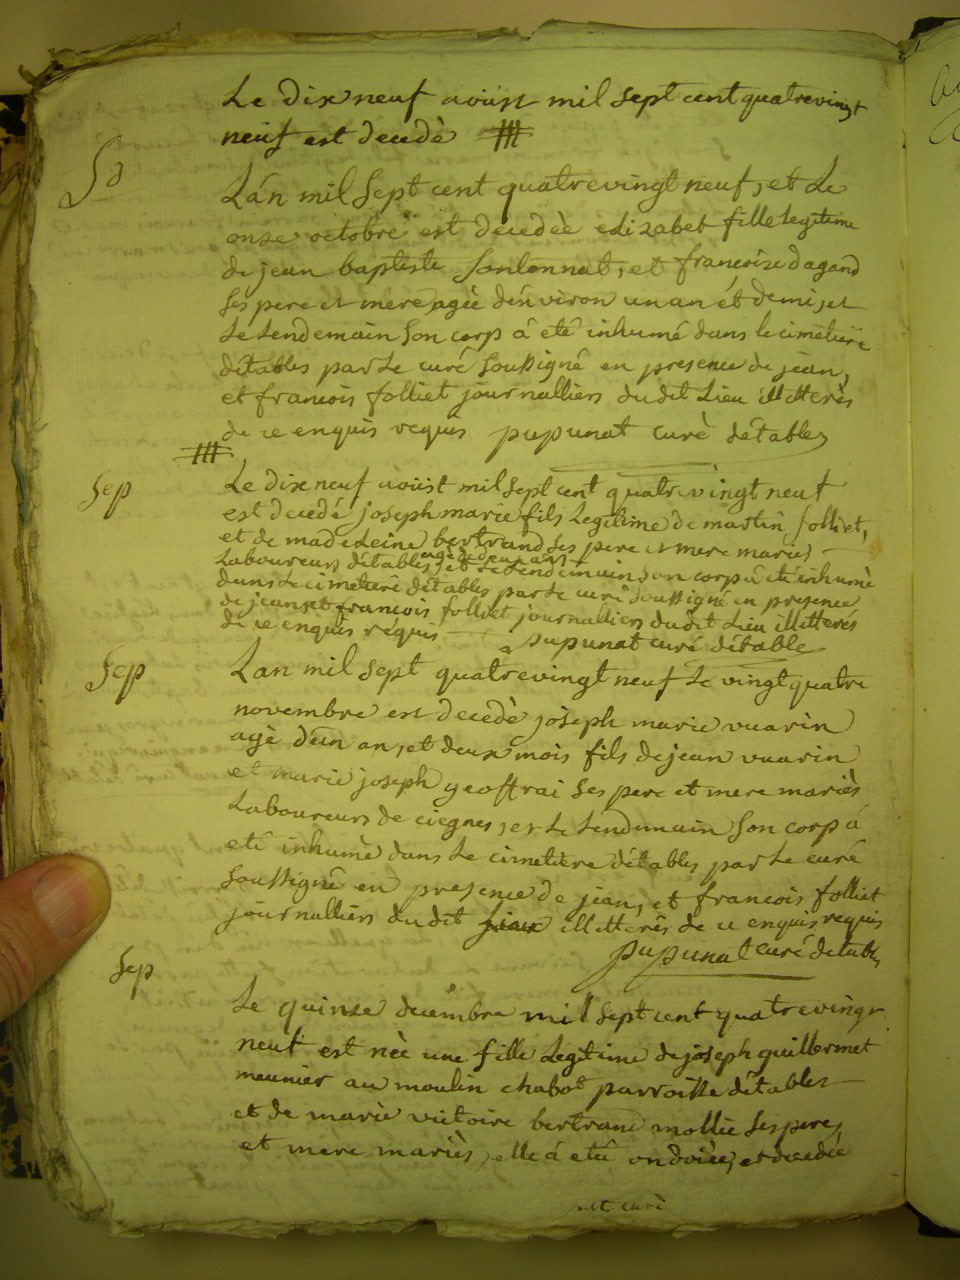 Le dix neuf aoûst mil sept cent quatrevingt
neuf est decedè #
Lán mil sept cent quatrevingt neuf, et Le
onze octobre est decedèe elizabet fille legitime
de jean baptiste fontonnat, et francoise dagand
ses pere et mere agèe dénviron un an ét demi, et
Le Lendemain son corp á eté inhumé dans le cimetiere
détables par Le curé soussigné en presence de jean,
et francois folliet journalliers dudit Lieu illitterès
de ce enquis requis pupunat curè détables
#
Sep
Le dix neuf aoûst mil sept cent quatrevingt neuf
est decedé joseph marie fils Legitime de martin folliet,
et de madeleine bertrand ses pere et mere mariès
agè de deux ans
Laboureurs détables, et Le Lendemain son corp á eté inhumè
dans Le cimetiere détables par Le curé soussigné en presence
de jean, et francois folliet journalliers dudit Lieu illitterés
de ce enquis réquis pupunat curé détable
Sep
Lan mil sept quatrevingt neuf Le vingt quatre
novembre est decedè joseph marie vuarin
agè dún an, et deux mois fils de jean vuarin
et marie joseph geoffrai ses pere et mere mariès
Laboureurs de ciegnes, et Le Lendemain son corp á
eté inhumè dans Le cimetiere détables par Le curé
soussigné en presence de jean, et francois folliet
journalliers dudit Lieux illitterés de ce enquis requis
pupunat curé detables
Sep
Le quinze decembre mil sept cent quatrevingt
neuf est nèe une fille Legitime de joseph guillermet
meunier au moulin chabot parroisse détables
et de marie victoire bertrand mollie ses pere,
et mere mariès, elle á eté ondoièe, et decedée
curè